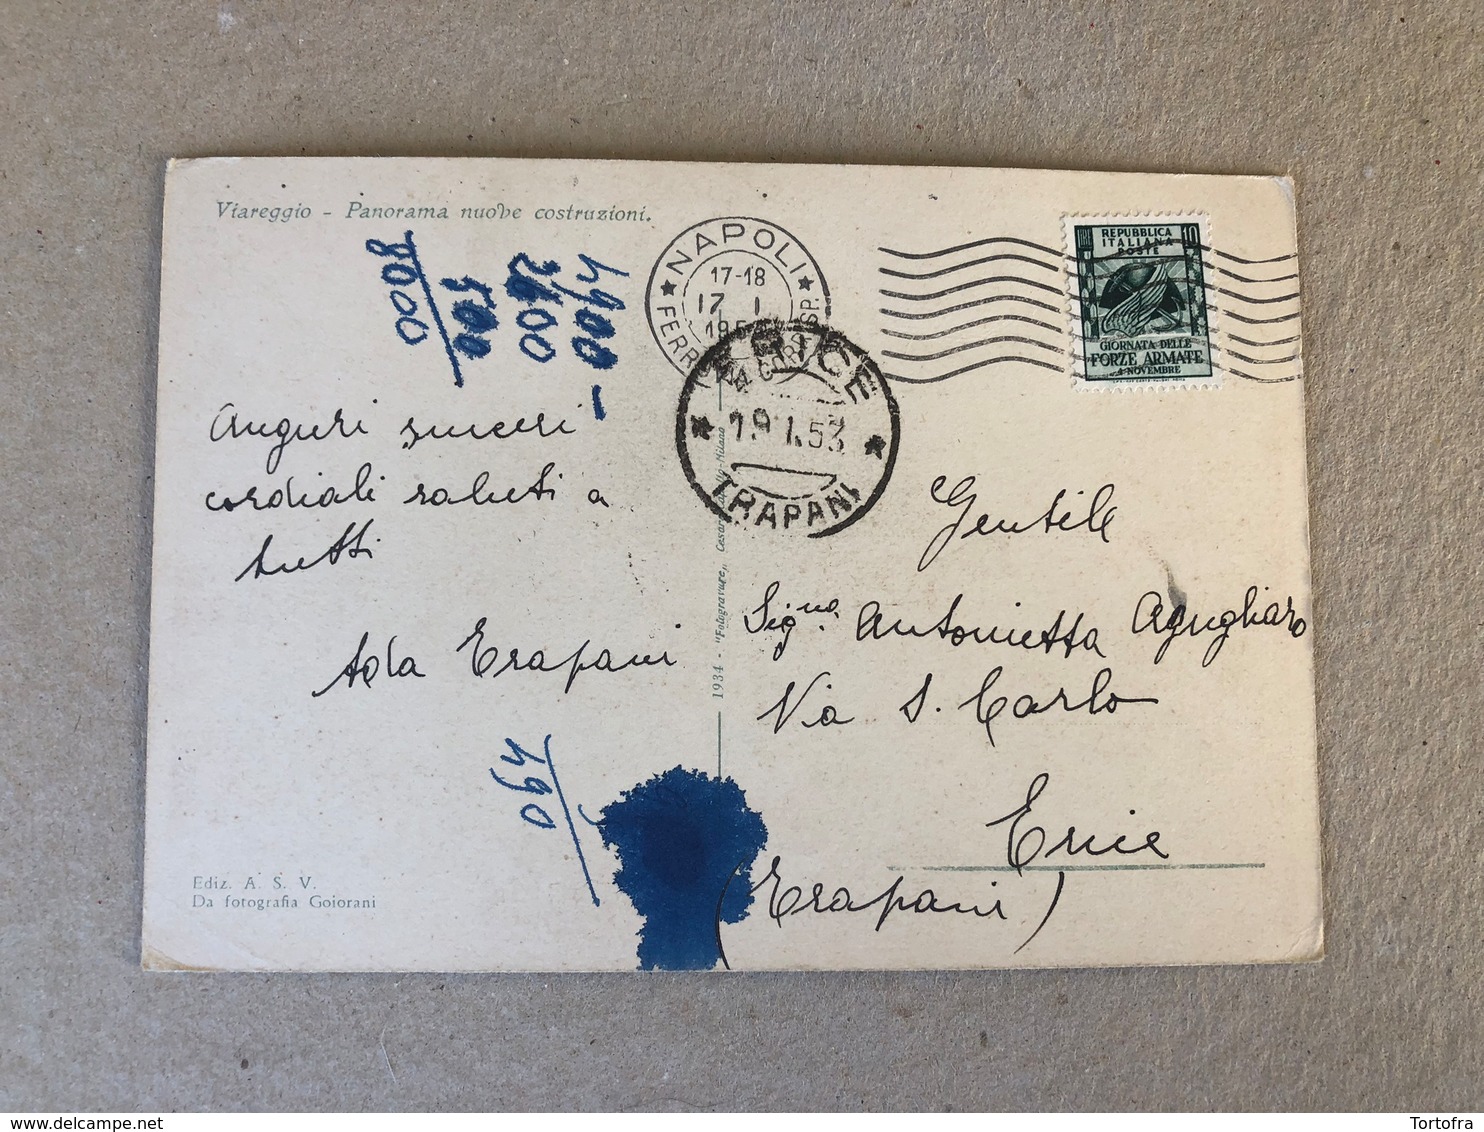 Viareggio - Panorama nuove costruzioni.
4900-
2600
500
8000
Auguri sinceri
cordiali saluti a
tutti
Ada Trapani
490
Ediz. A. S. V.
Da fotografia Goiorani
1934 - "Fotogravure" Cesare Milano
NAPOLI
17-18
17 1
195
FERR CORRISP.
ERICE
19.1.53
TRAPANI
REPUBBLICA 10
ITALIANA
POSTE
GIORNATA DELLE
FORZE ARMATE
4 NOVEMBRE
Gentile
Sig.na Antonietta Agugliaro
Via S. Carlo
Erice
(Trapani)
Tortofra